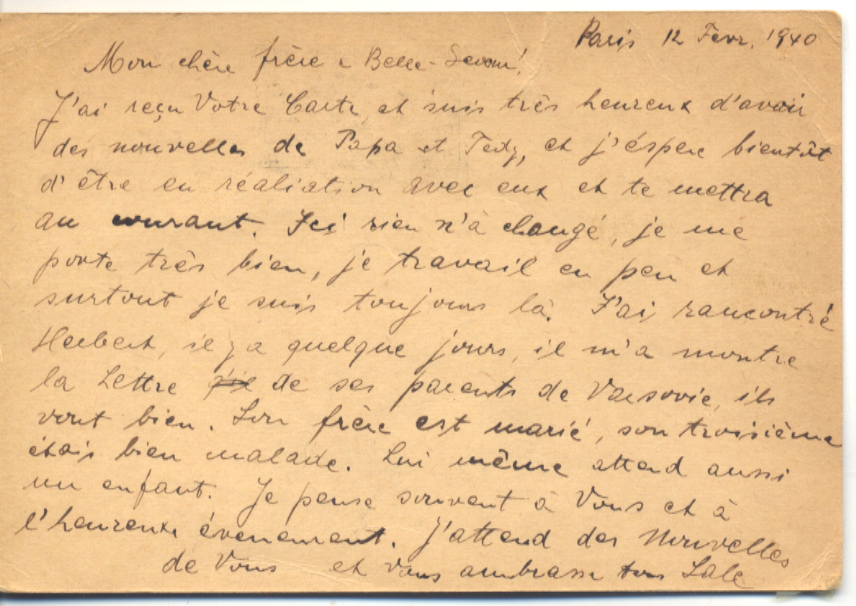 Paris 12 Fevr. 1940
Mon chère frère e Belle-Soeur!
J'ai reçu Votre Carte, et suis très heureux d'avoir
des nouvelles de Papa et Tedy, et j'éspere bientôt
d'être en réaliation avec eux et te mettra
au courant. Ici rien n'à changé, je me
porte très bien, je travail en peu et
surtout je suis toujours là. J'ai rancontré
Herbert, il y a quelque jours, il m'a montre
la Lettre de ses parents de Varsovie, ils
vont bien. Son frère est marié, son troisième
étais bien malade. Lui même attend aussi
un enfant. Je pense souvent à Vous et à
l'heureuse évenement. J'attend des Nouvelles
de Vous et vous ambrasse Lale